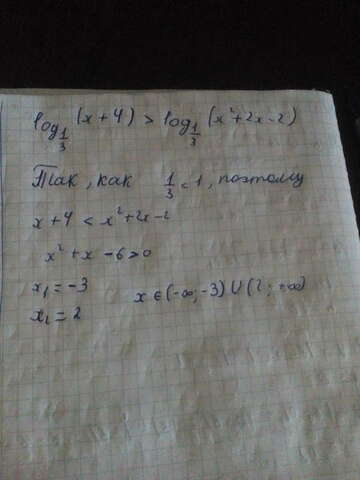 log_{1/3} (x+4) > log_{1/3} (x²+2x-2)
Так, как 1/3 < 1, поэтому
x+4 < x²+2x-2
x²+x-6>0
x₁ = -3
x∈(-∞; -3)∪(2; +∞)
x₂ = 2